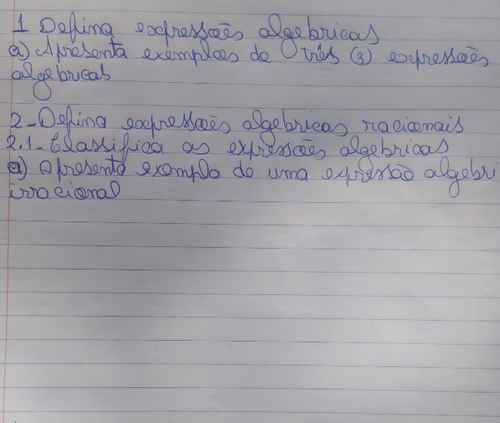 1 Defina expressões algebricas
a) Apresenta exemplos de três (3) expressões
algebricas
2-Defina expressões algebricas racionais
2.1-Classifica as expressões algebricas
a) Apresenta exemplo de uma expressão algebri
irracional